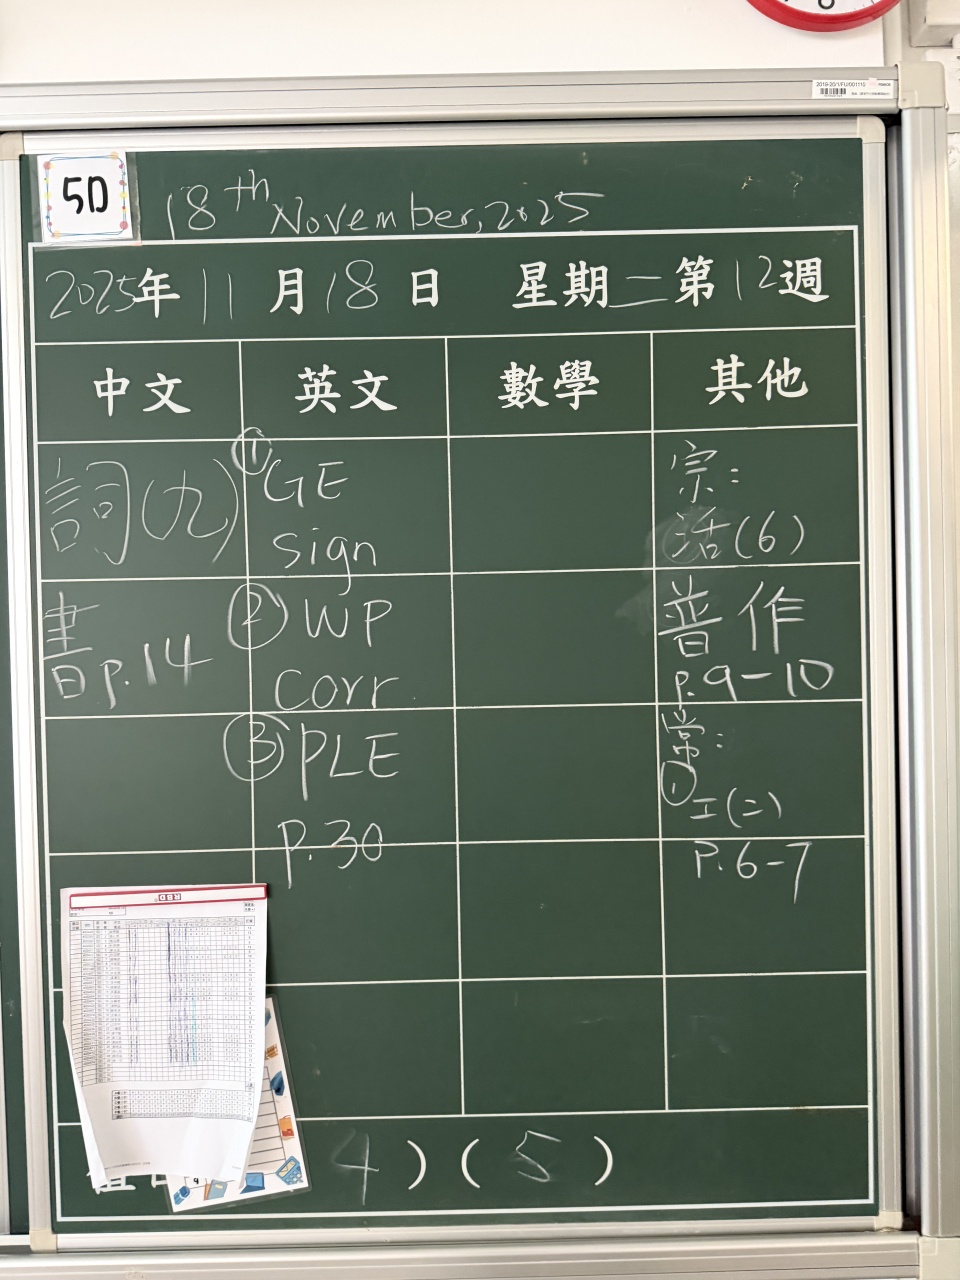 2019-20/1/FU/001115
5D
18th November, 2025
2025年 11 月 18 日 星期二 第 12 週
中文 英文 數學 其他
詞(九)
書 p.14
① GE
sign
② WP
corr
③ PLE
P.30
宗:
活(6)
普作
p.9-10
常:
① 工(二)
P.6-7
RBD
4 ) ( 5 )